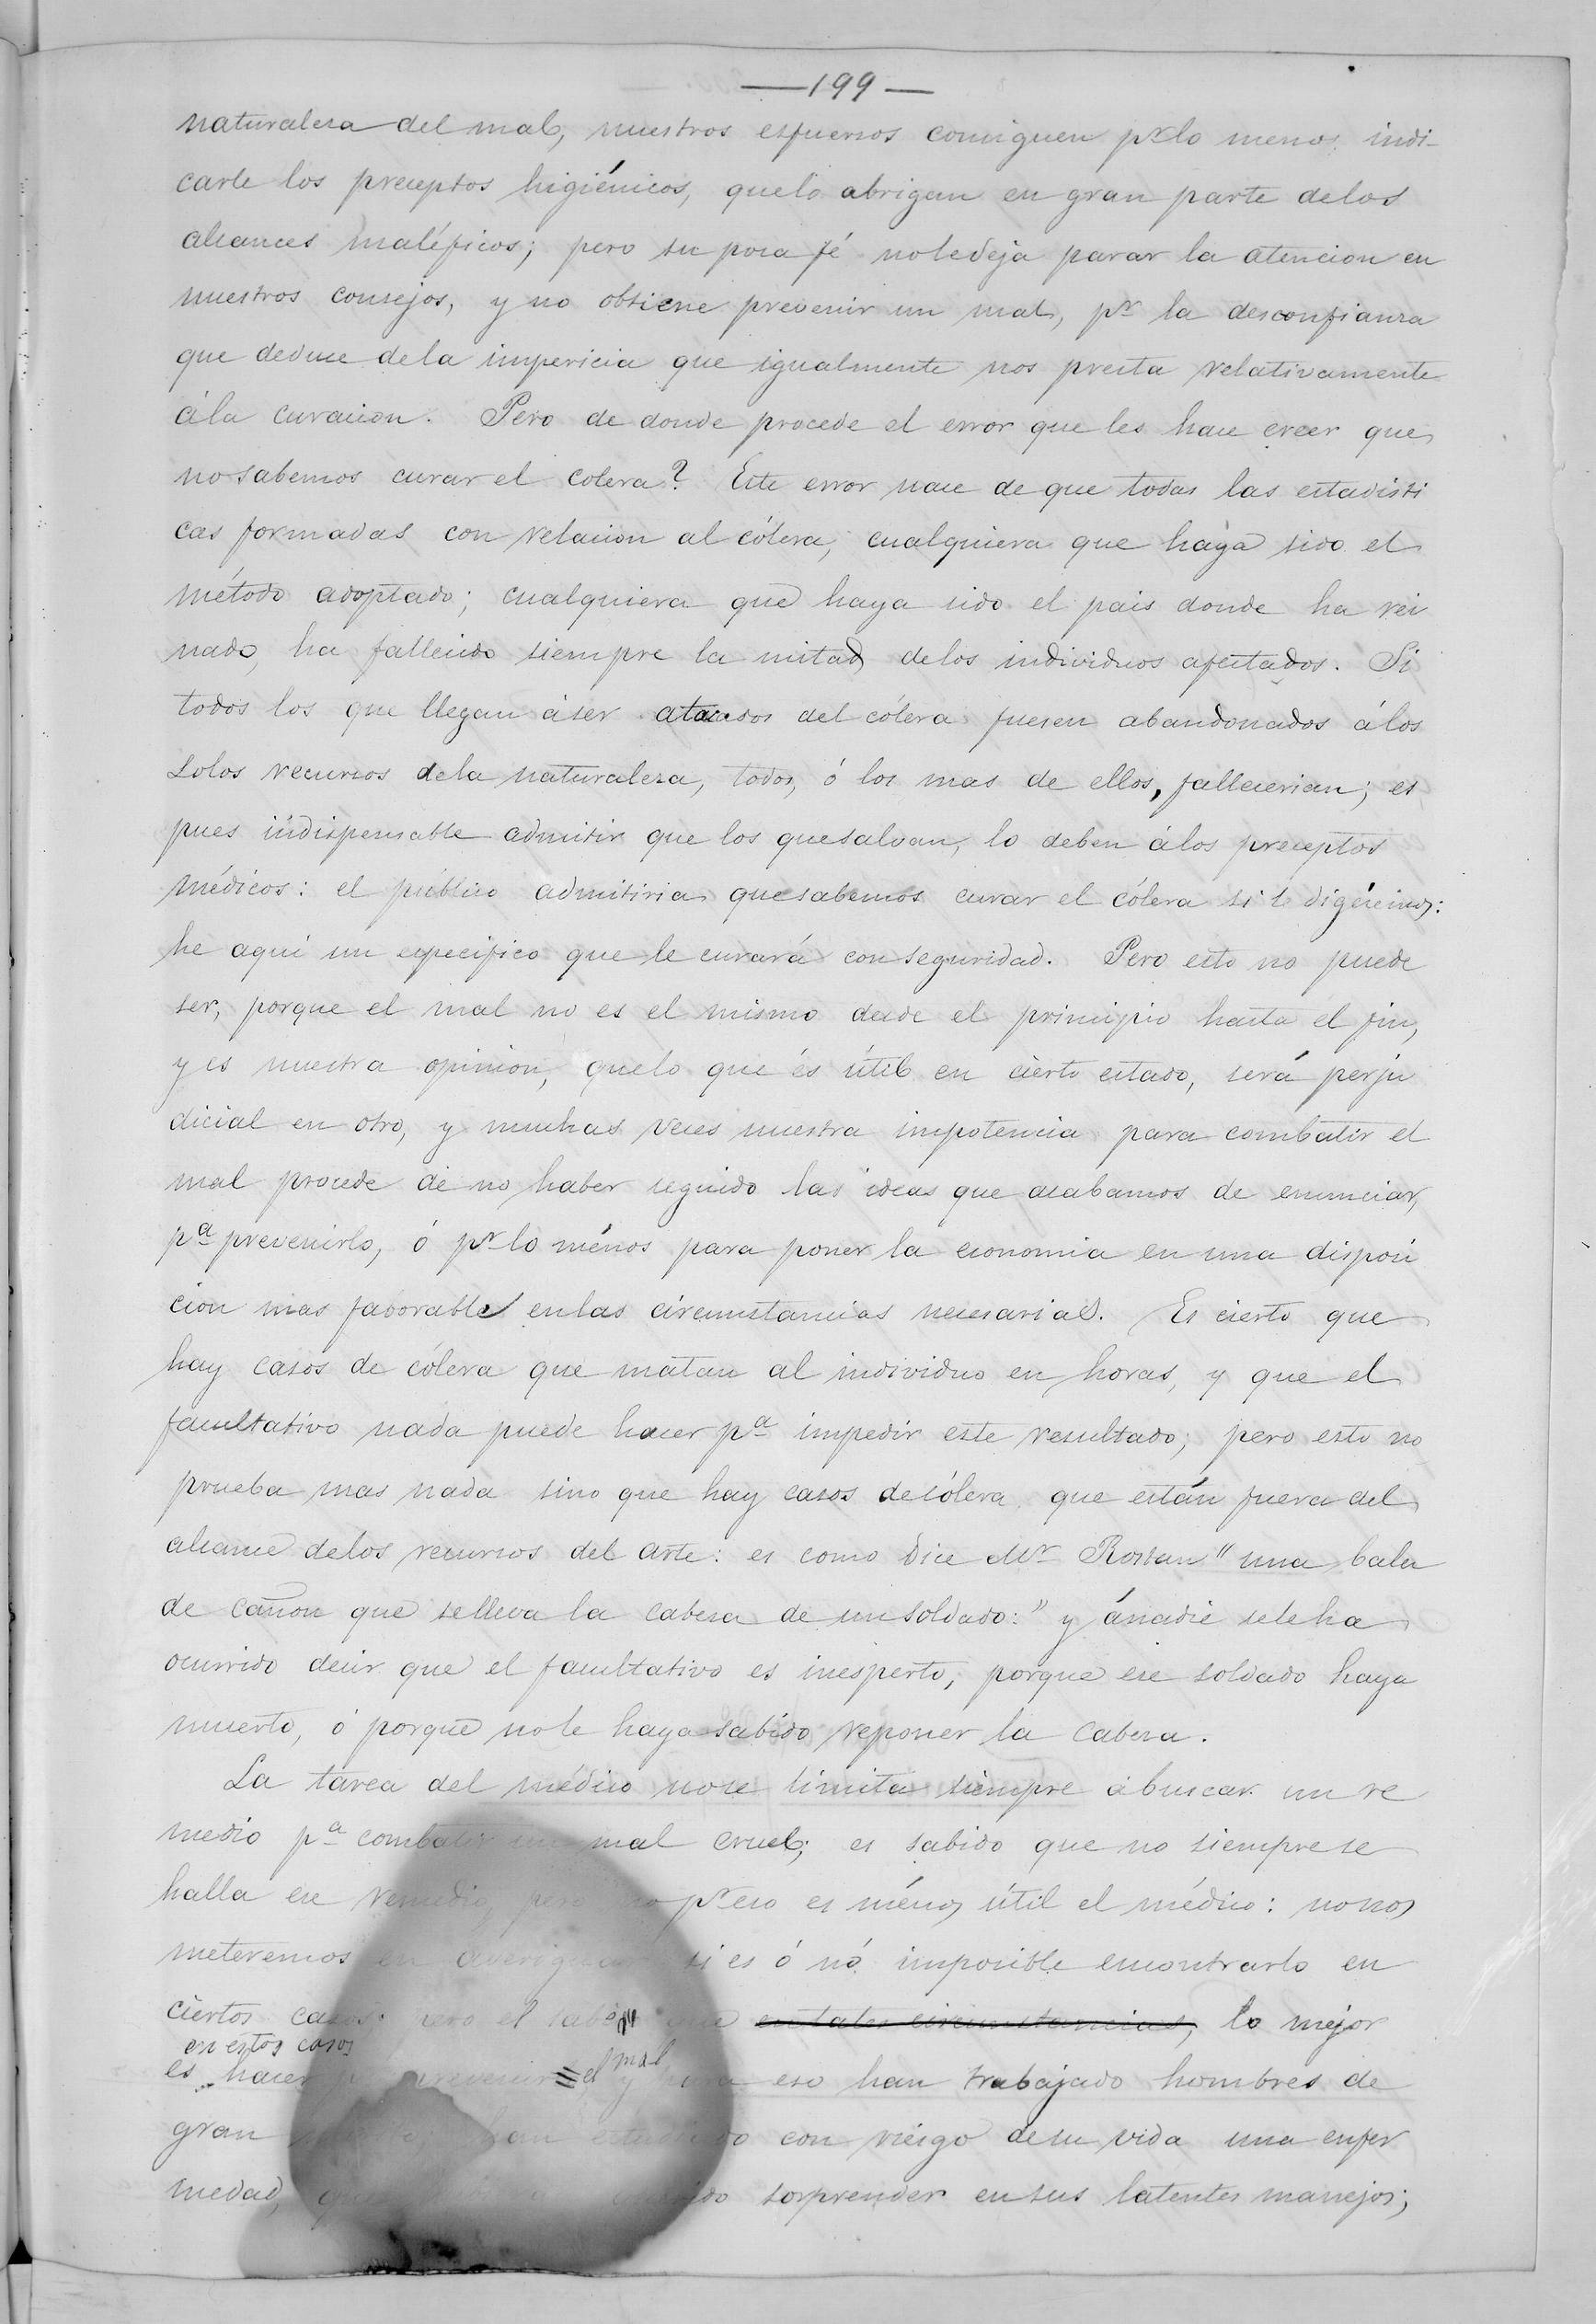 —199—
naturaleza del mal, nuestros esfuerzos consiguen pr lo menos indi-
carle los preceptos higiénicos, quelo abrigan en gran parte delos
alcances maléficos; pero su poca fé noledeja parar la atencion en
nuestros consejos, y no obtiene prevenir un mal, pr la desconfianza
que deduce dela impericia que igualmente nos presta relativamente
ála curacion. Pero de donde procede el error que les hace creer que
nosabemos curar el colera? Este error nace de que todas las estadisti
cas formadas con relacion al cólera, cualquiera que haya sido el
método adoptado; cualquiera que haya sido el pais donde ha rei
nado, ha fallecido siempre la mitad delos individuos afectados. Si
todos los que llegan áser atacados del cólera fuesen abandonados álos
solos recursos dela naturaleza, todos, ó los mas de ellos, fallecerian; es
pues indispensable admitir que los quesalvan, lo deben álos preceptos
médicos: el público admitiria quesabemos curar el cólera si le digéremos:
he aqui un especifico que le curará con seguridad. Pero esto no puede
ser, porque el mal no es el mismo desde el principio hasta el fin,
y es nuestra opinion, quelo que és útil en cierto estado, será perju
dicial en otro, y muchas veces nuestra impotencia para combatir el
mal procede de no haber seguido las ideas que acabamos de enunciar,
pa prevenirlo, ó pr lo ménos para poner la economia en una disposi
cion mas favorable enlas circunstancias necesarias. Es cierto que
hay casos de cólera que matan al individuo en horas, y que el
facultativo nada puede hacer pa impedir este resultado; pero esto no
prueba mas nada sino que hay casos decólera que están fuera del
alcance delos recursos del arte: es como dice Mr Rostan "una bala
de cañon que selleva la cabeza de un soldado:" y ánadie sele ha
ocurrido decir que el facultativo es inesperto, porque ese soldado haya
muerto, ó porque nole haya sabido reponer la cabeza.
La tarea del médico nose limita siempre ábuscar un re
medio pa combatir un mal cruel; es sabido que no siempre se
halla ese remedio, pero no pr eso es ménos útil el médico: nonos
meteremos en averiguar si es ó nó imposible encontrarlo en
ciertos casos: pero el que en tales circunstancias, lo mejor
en estos casos
es hacer prevenir el mal y para eso han trabajado hombres de
gran han estudiado con riesgo desu vida una enfer
medad, sorprender ensus latentes manejos;